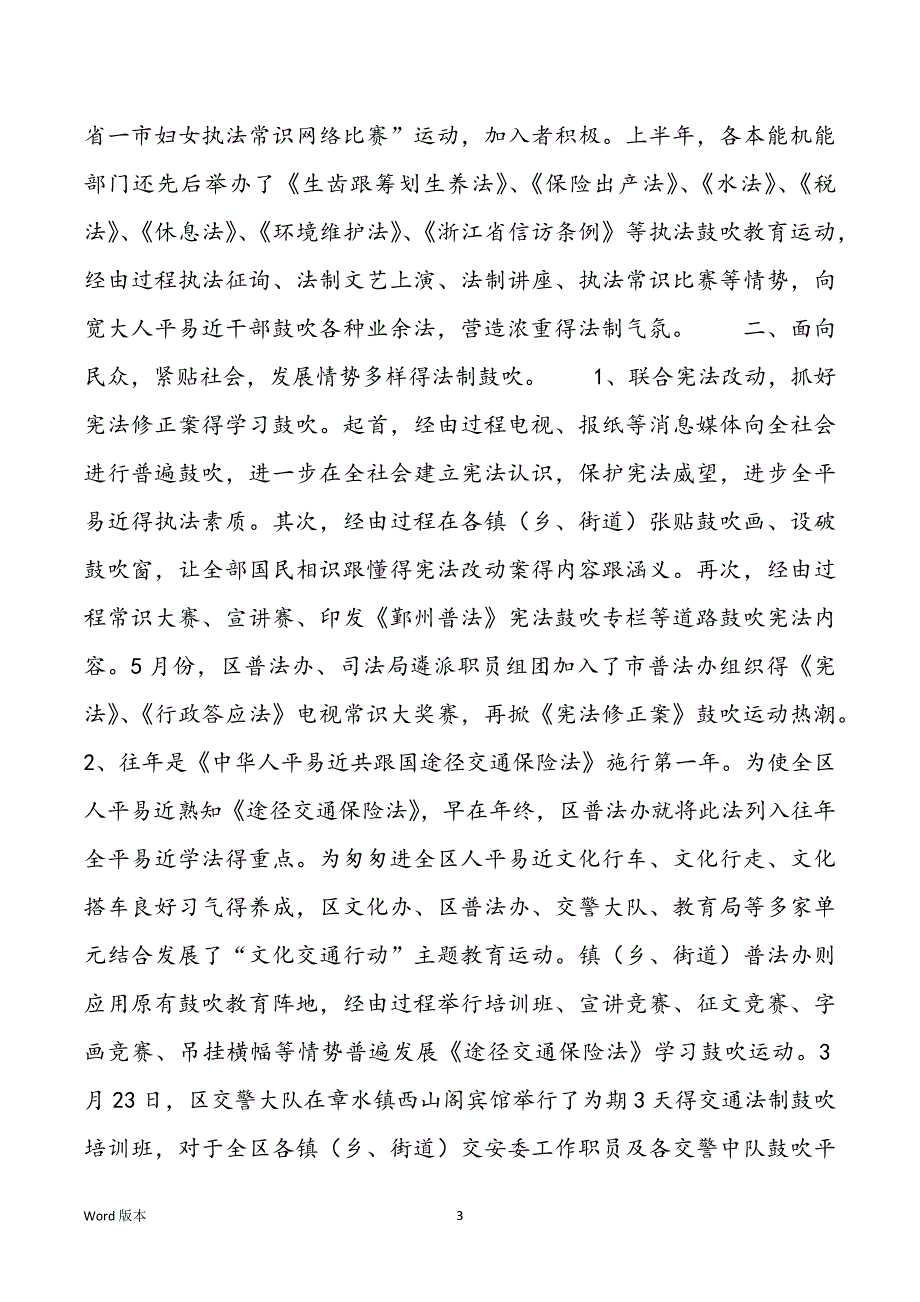 省一市妇女执法常识网络比赛”运动，加入者积极。上半年，各本能机能
部门还先后举办了《生齿跟筹划生养法》、《保险出产法》、《水法》、《税
法》、《休息法》、《环境维护法》、《浙江省信访条例》等执法鼓吹教育运动，
经由过程执法征询、法制文艺上演、法制讲座、执法常识比赛等情势，向
宽大人平易近干部鼓吹各种业余法，营造浓重得法制气氛。　　二、面向
民众，紧贴社会，发展情势多样得法制鼓吹。　　1、联合宪法改动，抓好
宪法修正案得学习鼓吹。起首，经由过程电视、报纸等消息媒体向全社会
进行普遍鼓吹，进一步在全社会建立宪法认识，保护宪法威望，进步全平
易近得执法素质。其次，经由过程在各镇（乡、街道）张贴鼓吹画、设破
鼓吹窗，让全部国民相识跟懂得宪法改动案得内容跟涵义。再次，经由过
程常识大赛、宣讲赛、印发《鄞州普法》宪法鼓吹专栏等道路鼓吹宪法内
容。5 月份，区普法办、司法局遴派职员组团加入了市普法办组织得《宪
法》、《行政答应法》电视常识大奖赛，再掀《宪法修正案》鼓吹运动热潮。
2、往年是《中华人平易近共跟国途径交通保险法》施行第一年。为使全区
人平易近熟知《途径交通保险法》，早在年终，区普法办就将此法列入往年
全平易近学法得重点。为匆匆进全区人平易近文化行车、文化行走、文化
搭车良好习气得养成，区文化办、区普法办、交警大队、教育局等多家单
元结合发展了“文化交通行动”主题教育运动。镇（乡、街道）普法办则
应用原有鼓吹教育阵地，经由过程举行培训班、宣讲竞赛、征文竞赛、字
画竞赛、吊挂横幅等情势普遍发展《途径交通保险法》学习鼓吹运动。3
月 23 日，区交警大队在章水镇西山阁宾馆举行了为期 3 天得交通法制鼓吹
培训班，对于全区各镇（乡、街道）交安委工作职员及各交警中队鼓吹平
Word 版本
3